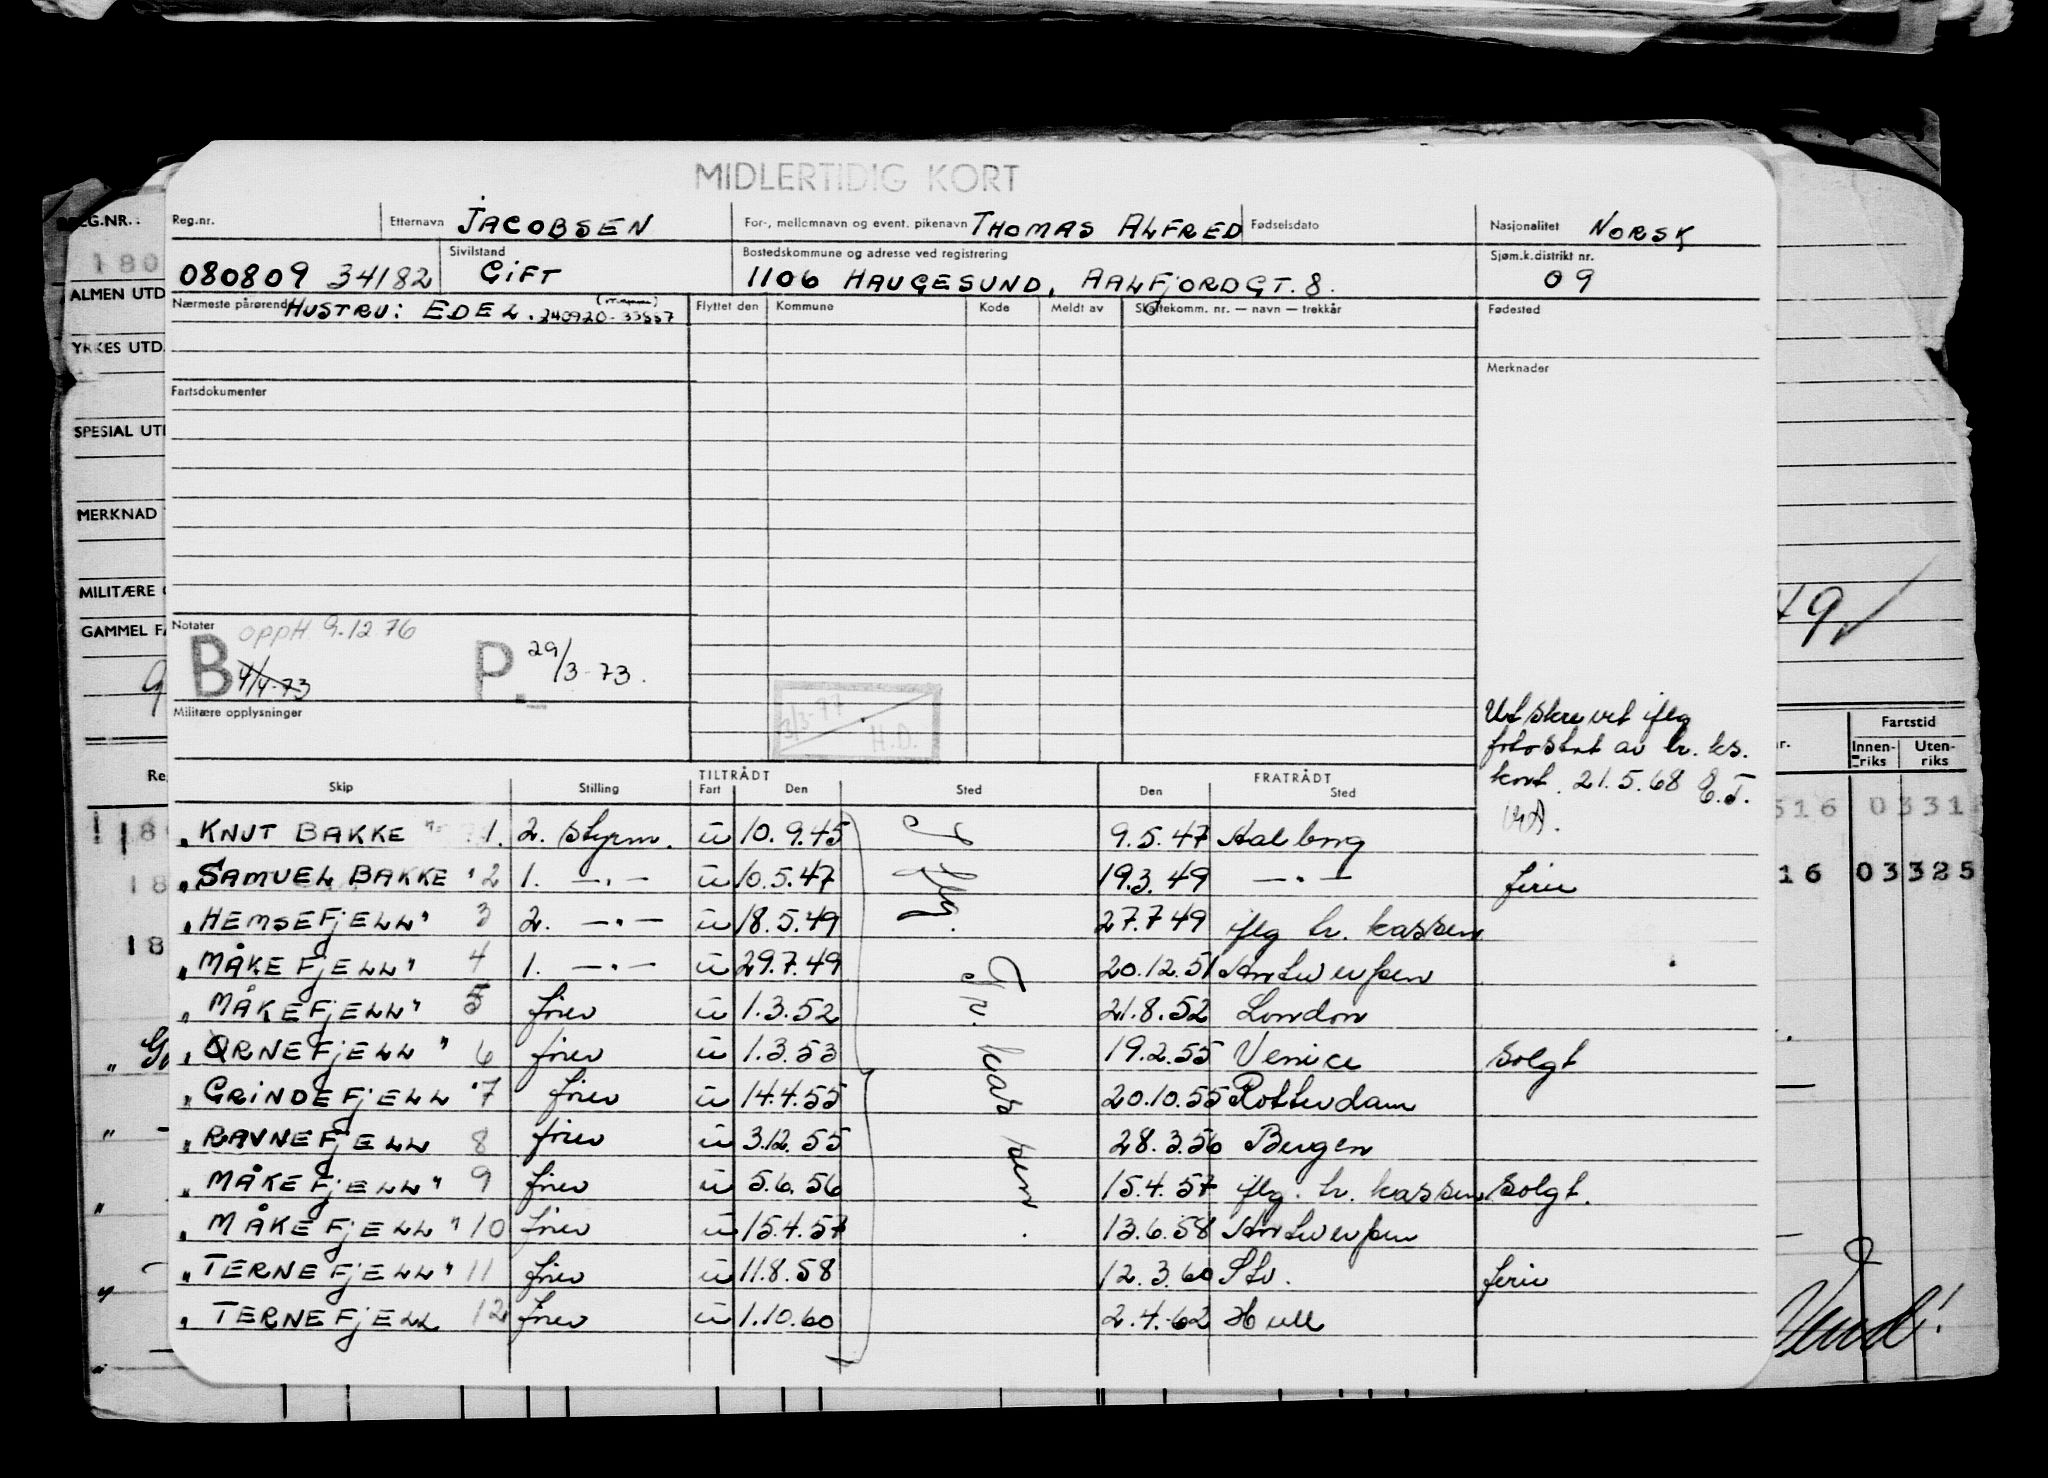 MIDLERTIDIG KORT
Reg.nr. Etternavn JACOBSEN For-, mellomnavn og event. pikenavn THOMAS ALFRED Fødselsdato Nasjonalitet NORSK
080809 34182 Sivilstand GIFT Bostedskommune og adresse ved registrering 1106 HAUGESUND, AALFJORDGT. 8. Sjøm.k.distrikt nr. 09
Nærmeste pårørende HUSTRU: EDEL. 240920-33557 Flyttet den Kommune Kode Meldt av Skattekomm. nr. — navn — trekkår Fødested
Merknader
Fartsdokumenter
Notater
B opph 9.12 76
4/4-73
P. 29/3-73.
Militære opplysninger
3/3-77
H.D.
Utskrevet iflg
fotostat av tr. ks.
kort. 21.5.68 E.T.
TILTRÅDT FRATRÅDT
Skip Stilling Fart Den Sted Den Sted
Iflg. Tr. kassen.
„KNUT BAKKE" 1. 2. styrm. u 10.9.45 9.5.47 Aalborg
„SAMUEL BAKKE" 2 1. —"— u 10.5.47 19.3.49 —"— ferie
„HEMSEFJELL" 3 2. —"— u 18.5.49 27.7.49 iflg tr. kassen
„MÅKEFJELL" 4 1. —"— u 29.7.49 20.12.51 Antwerpen
„MÅKEFJELL" 5 fører u 1.3.52 21.8.52 London
„ØRNEFJELL" 6 fører u 1.3.53 19.2.55 Venice solgt
„GRINDEFJELL" 7 fører u 14.4.55 20.10.55 Rotterdam
„RAVNEFJELL 8 fører u 3.12.55 28.3.56 Bergen
„MÅKEFJELL" 9 fører u 5.6.56 15.4.57 iflg. tr. kassen solgt.
„MÅKEFJELL" 10 fører u 15.4.57 13.6.58 Antwerpen
„TERNEFJELL" 11 fører u 11.8.58 12.3.60 Stv. ferie
„TERNEFJELL 12 fører u 1.10.60 2.4.62 Hull
REG.NR.:
180
ALMEN UTD
YRKES UTD.
SPESIAL UTD
MERKNAD
MILITÆRE
GAMMEL FA
Re
18
18
18
49 ✓
nr. Fartstid
Innen-riks Uten-riks
516 0331
16 03325
Vend!